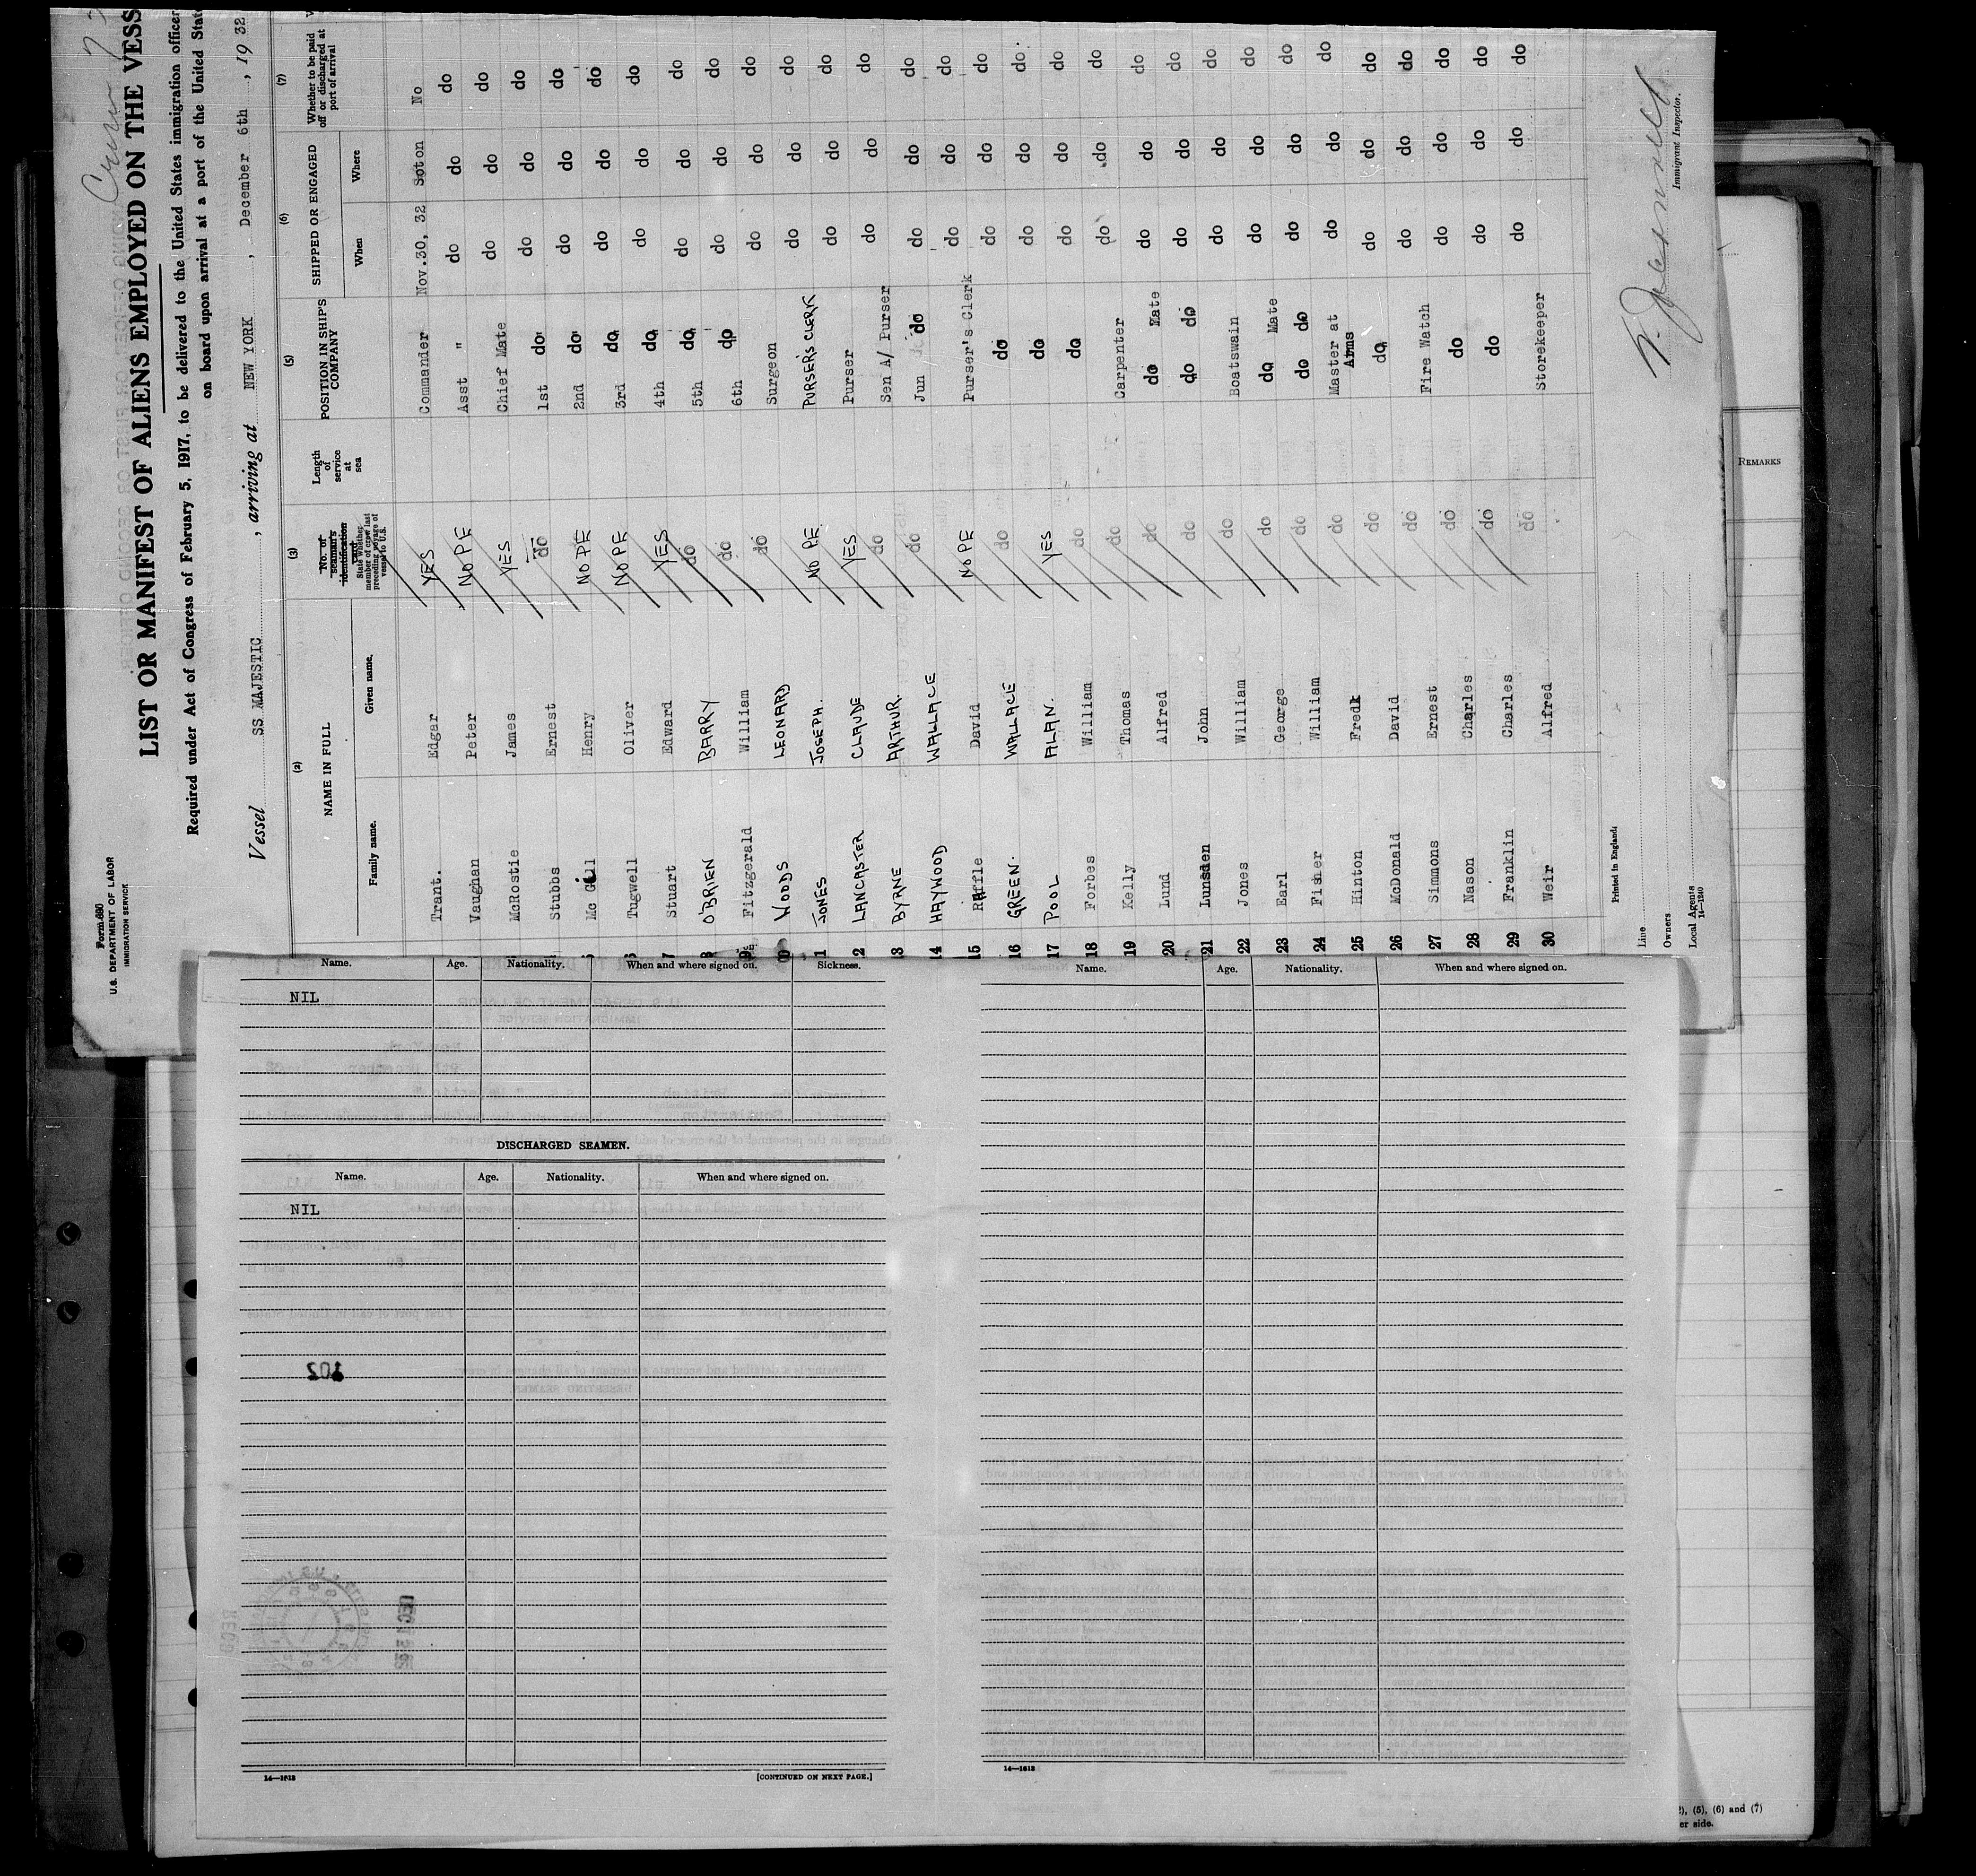 Form 690
U.S. DEPARTMENT OF LABOR
IMMIGRATION SERVICE
LIST OR MANIFEST OF ALIENS EMPLOYED ON THE VESS
Required under Act of Congress of February 5, 1917, to be delivered to the United States immigration officer
on board upon arrival at a port of the United Stat
Vessel SS MAJESTIC, arriving at NEW YORK, December 6th, 1932
(2) (3) (5) (6) (7)
NAME IN FULL No. of seaman's identification card State whether member of crew last preceding voyage of vessel to U.S. Length of service at sea POSITION IN SHIP'S COMPANY SHIPPED OR ENGAGED Whether to be paid off or discharged at port of arrival
Family name. Given name. When Where
Trant. Edgar YES Commander Nov.30, 32 Soton No
Vaughan Peter NO PE Asst " do do do
McRostie James YES Chief Mate do do do
Stubbs Ernest do 1st do do do do
Mc Gill Henry NO PE 2nd do do do do
Tugwell Oliver NO PE 3rd do do do do
7 Stuart Edward YES 4th do do do do
8 O'BRIEN BARRY do 5th do do do do
9 Fitzgerald William do 6th do do do do
0 WOODS LEONARD do Surgeon do do do
1 JONES JOSEPH. NO PE. PURSER'S CLERK do do do
2 LANCASTER CLAUDE YES Purser do do do
13 BYRNE ARTHUR. do Sen A/ Purser do do do
14 HAYWOOD WALLACE do Jun do do do do
15 Raffle David NO PE Purser's Clerk do do do
16 GREEN. WALLACE do do do do do
17 POOL ALAN. YES do do do do
18 Forbes William do do do do do
19 Kelly Thomas do Carpenter do do do
20 Lund Alfred do do Mate do do do
21 Lunsden John do do do do do do
22 Jones William do Boatswain do do do
23 Earl George do do Mate do do do
24 Fisher William do do do do do do
25 Hinton Fredk do Master at Arms do do do
26 McDonald David do do do do do
27 Simmons Ernest do Fire Watch do do do
28 Nason Charles do do do do do
29 Franklin Charles do do do do do
30 Weir Alfred do Storekeeper
Printed in England
Line
Owners
Local Agents
14-1240
Immigrant Inspector.
Name. Age. Nationality. When and where signed on. Sickness.
NIL
DISCHARGED SEAMEN.
Name. Age. Nationality. When and where signed on.
NIL
102
14-1613
[CONTINUED ON NEXT PAGE.]
Name. Age. Nationality. When and where signed on.
14-1613
REMARKS
), (5), (6) and (7)
er side.